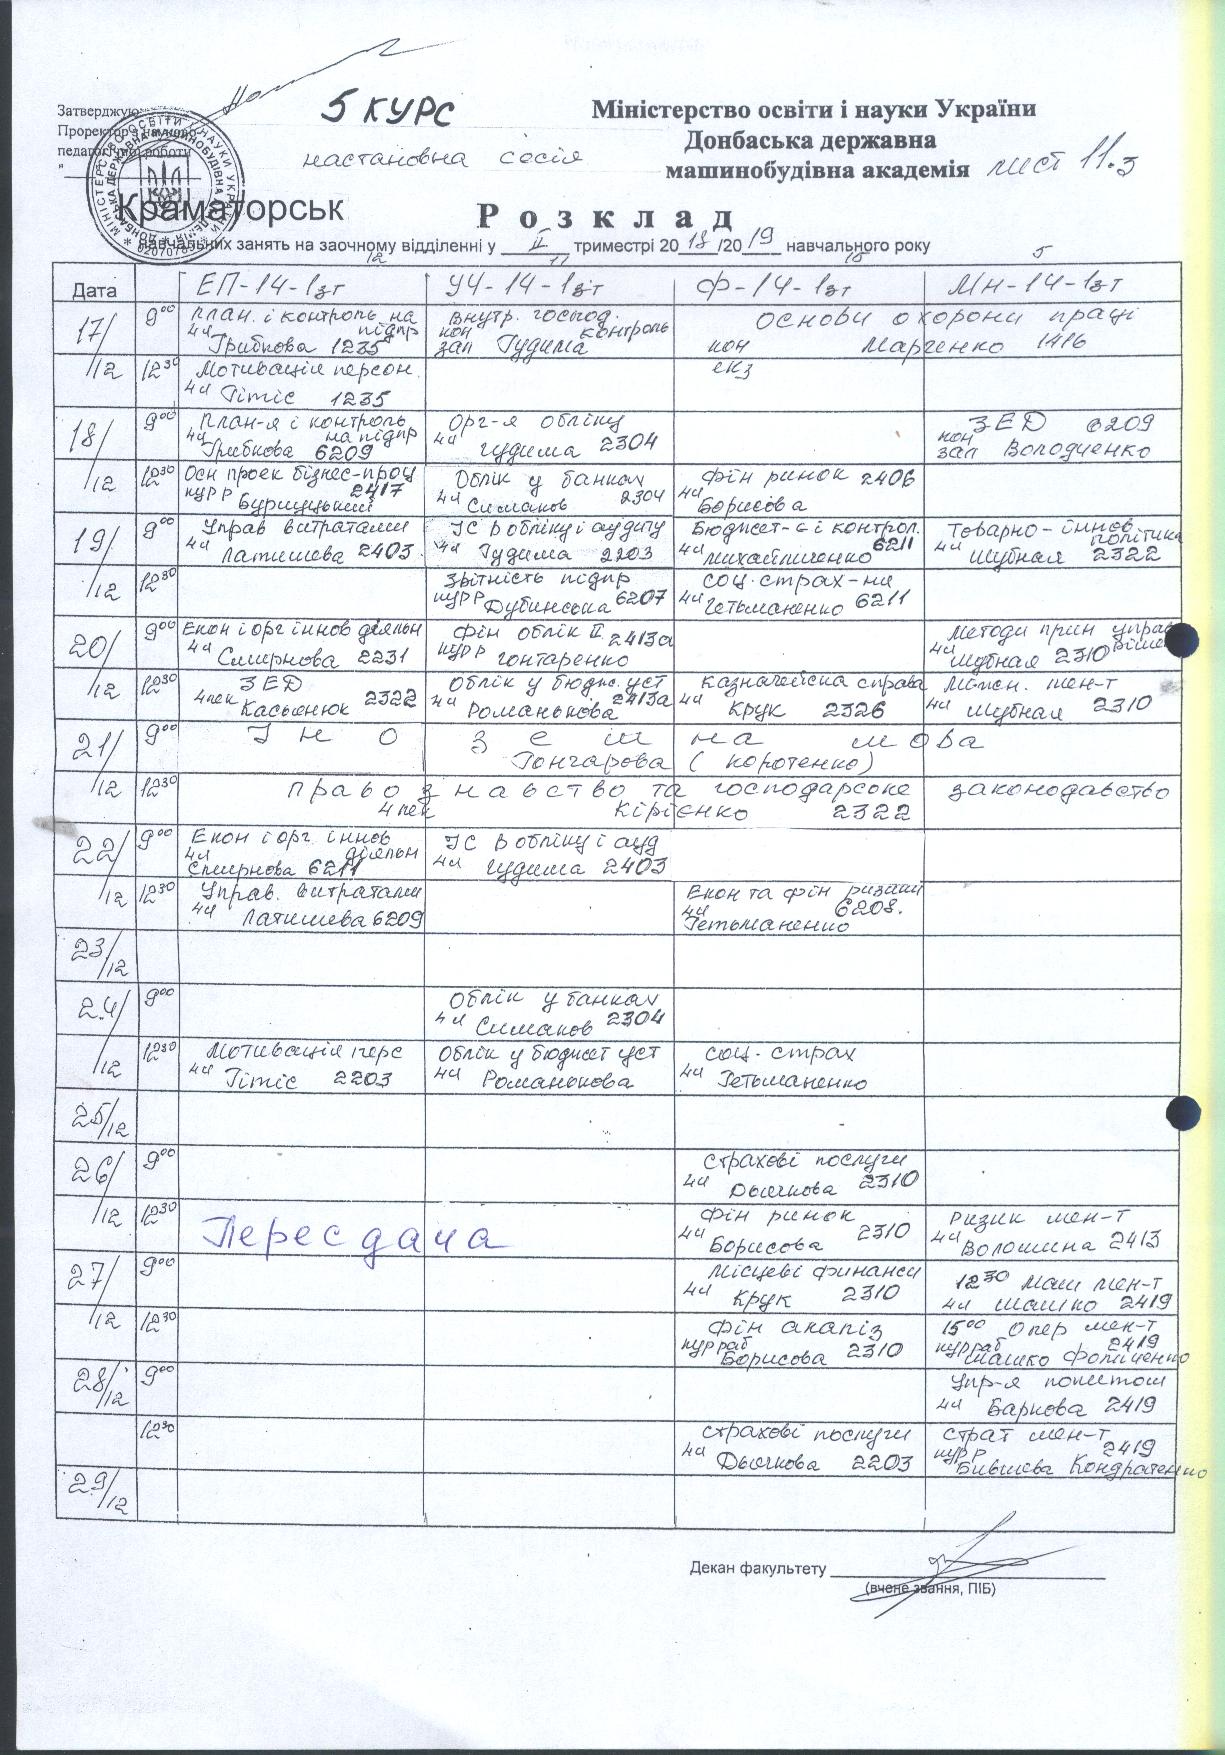 Затверджую
5 КУРС
Міністерство освіти і науки України
Проректор з науково
Донбаська державна
педагогічної роботи
настановна сесія
машинобудівна академія лист 11.3
Краматорськ
Розклад
навчальних занять на заочному відділенні у II триместрі 2018/2019 навчального року
12 11 15 5
Дата ЕП-14-1зт УЧ-14-1зт Ф-14-1зт Мн-14-1зт
17/ 9⁰⁰ План. і контроль на Внутр. господ. Основи охорони праці
4ч підпр кон контроль
Грибкова 1235 зал Гудима кон Марченко 1416
/12 12³⁰ Мотивація персон. екз
4ч Гітіс 1235
18/ 9⁰⁰ План-я і контроль Орг-я обліку ЗЕД 6209
4ч на підпр 4ч кон
Грибкова 6209 Гудима 2304 зал Володченко
/12 12³⁰ Осн проек бізнес-проц Облік у банках Фін ринок 2406
курр 2417 4ч Симаков 2304 4ч Борисова
19/ 9⁰⁰ Управ витратами ІС в обліку і аудиту Бюджет-є і контрол. Товарно-іннов
політика
4ч Латишева 2403 4ч Гудима 2203 4ч Михайличенко 6211 4ч Шубная 2322
/12 12³⁰ Звітність підпр Соц. страх-ня
курр Дубинська 6207 4ч Гетьманенко 6211
20/ 9⁰⁰ Екон і орг іннов діяльн Фін облік II 2413а Методи прин управ
рішен
4ч Смирнова 2231 курр Гонтаренко 4ч Шубная 2310
/12 12³⁰ ЗЕД Облік у бюдж. уст Казначейська справа Міжн. мен-т
4пек Касьянюк 2322 4ч Романькова 2413а 4ч Крук 2326 4ч Шубная 2310
21/ 9⁰⁰ Іноземна мова
Гончарова (Коротенко)
/12 12³⁰ Правознавство та господарське законодавство
4 пек Кірієнко 2322
22/ 9⁰⁰ Екон і орг. іннов ІС в обліку і ауд
4ч діяльн
Смирнова 6211 4ч Гудима 2403
/12 12³⁰ Управ. витратами Екон та фін ризики
4ч Латишева 6209 4ч 6208.
Гетьманенко
23/12
24/ 9⁰⁰ Облік у банках
4ч Симаков 2304
/12 12³⁰ Мотивація перс Облік у бюджет уст Соц. страх
4ч Гітіс 2203 4ч Романькова 4ч Гетьманенко
25/12
26/ 9⁰⁰ Страхові послуги
4ч Дьячкова 2310
/12 12³⁰ Пересдача Фін ринок Ризик мен-т
4ч Борисова 2310 4ч Волошина 2413
27/ 9⁰⁰ Місцеві финанси 12³⁰ Маш мен-т
4ч Крук 2310 4ч Шашко 2419
/12 12³⁰ Фін аналіз 15⁰⁰ Опер мен-т
курраб Борисова 2310 курраб 2419
Шашко Фоміченко
28/12 9⁰⁰ Упр-я
4ч Баркова 2419
12³⁰ Страхові послуги Страт мен-т
4ч Дьячкова 2203 курр 2419
Кондратенко
29/12
Декан факультету
(вчене звання, ПІБ)